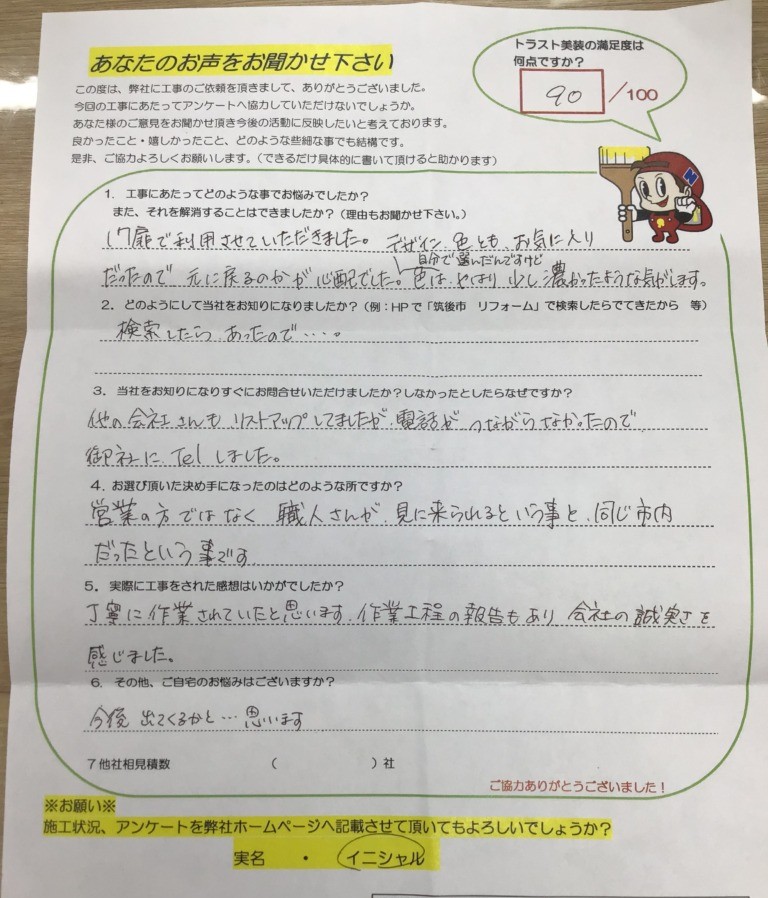 あなたのお声をお聞かせ下さい
トラスト美装の満足度は
何点ですか?
90 /100
この度は、弊社に工事のご依頼を頂きまして、ありがとうございました。
今回の工事にあたってアンケートへ協力していただけないでしょうか。
あなた様のご意見をお聞かせ頂き今後の活動に反映したいと考えております。
良かったこと・嬉しかったこと、どのような些細な事でも結構です。
是非、ご協力よろしくお願いします。(できるだけ具体的に書いて頂けると助かります)
N
1. 工事にあたってどのような事でお悩みでしたか?
また、それを解消することはできましたか?(理由もお聞かせ下さい。)
17扉で利用させていただきました。デザイン、色とも、お気に入り
だったので 元に戻るのかが心配でした。
自分で選んだんですけど
色は、やはり少し濃かったような気がします。
2. どのようにして当社をお知りになりましたか?(例:HPで「筑後市 リフォーム」で検索したらでてきたから 等)
検索したら、あったので・・・。
3. 当社をお知りになりすぐにお問合せいただけましたか?しなかったとしたらなぜですか?
他の会社さんも リストアップしてましたが、電話が つながらなかったので、
御社に、Tel しました。
4. お選び頂いた決め手になったのはどのような所ですか?
営業の方ではなく 職人さんが、見に来られるという事と、同じ市内
だったという事です
5. 実際に工事をされた感想はいかがでしたか?
丁寧に作業されていたと思います、作業工程の報告もあり 会社の誠実さを
感じました。
6. その他、ご自宅のお悩みはございますか?
今後 出てくるかと…思います
7 他社相見積数 ( )社
ご協力ありがとうございました!
※お願い※
施工状況、アンケートを弊社ホームページへ記載させて頂いてもよろしいでしょうか?
実名 ・ イニシャル